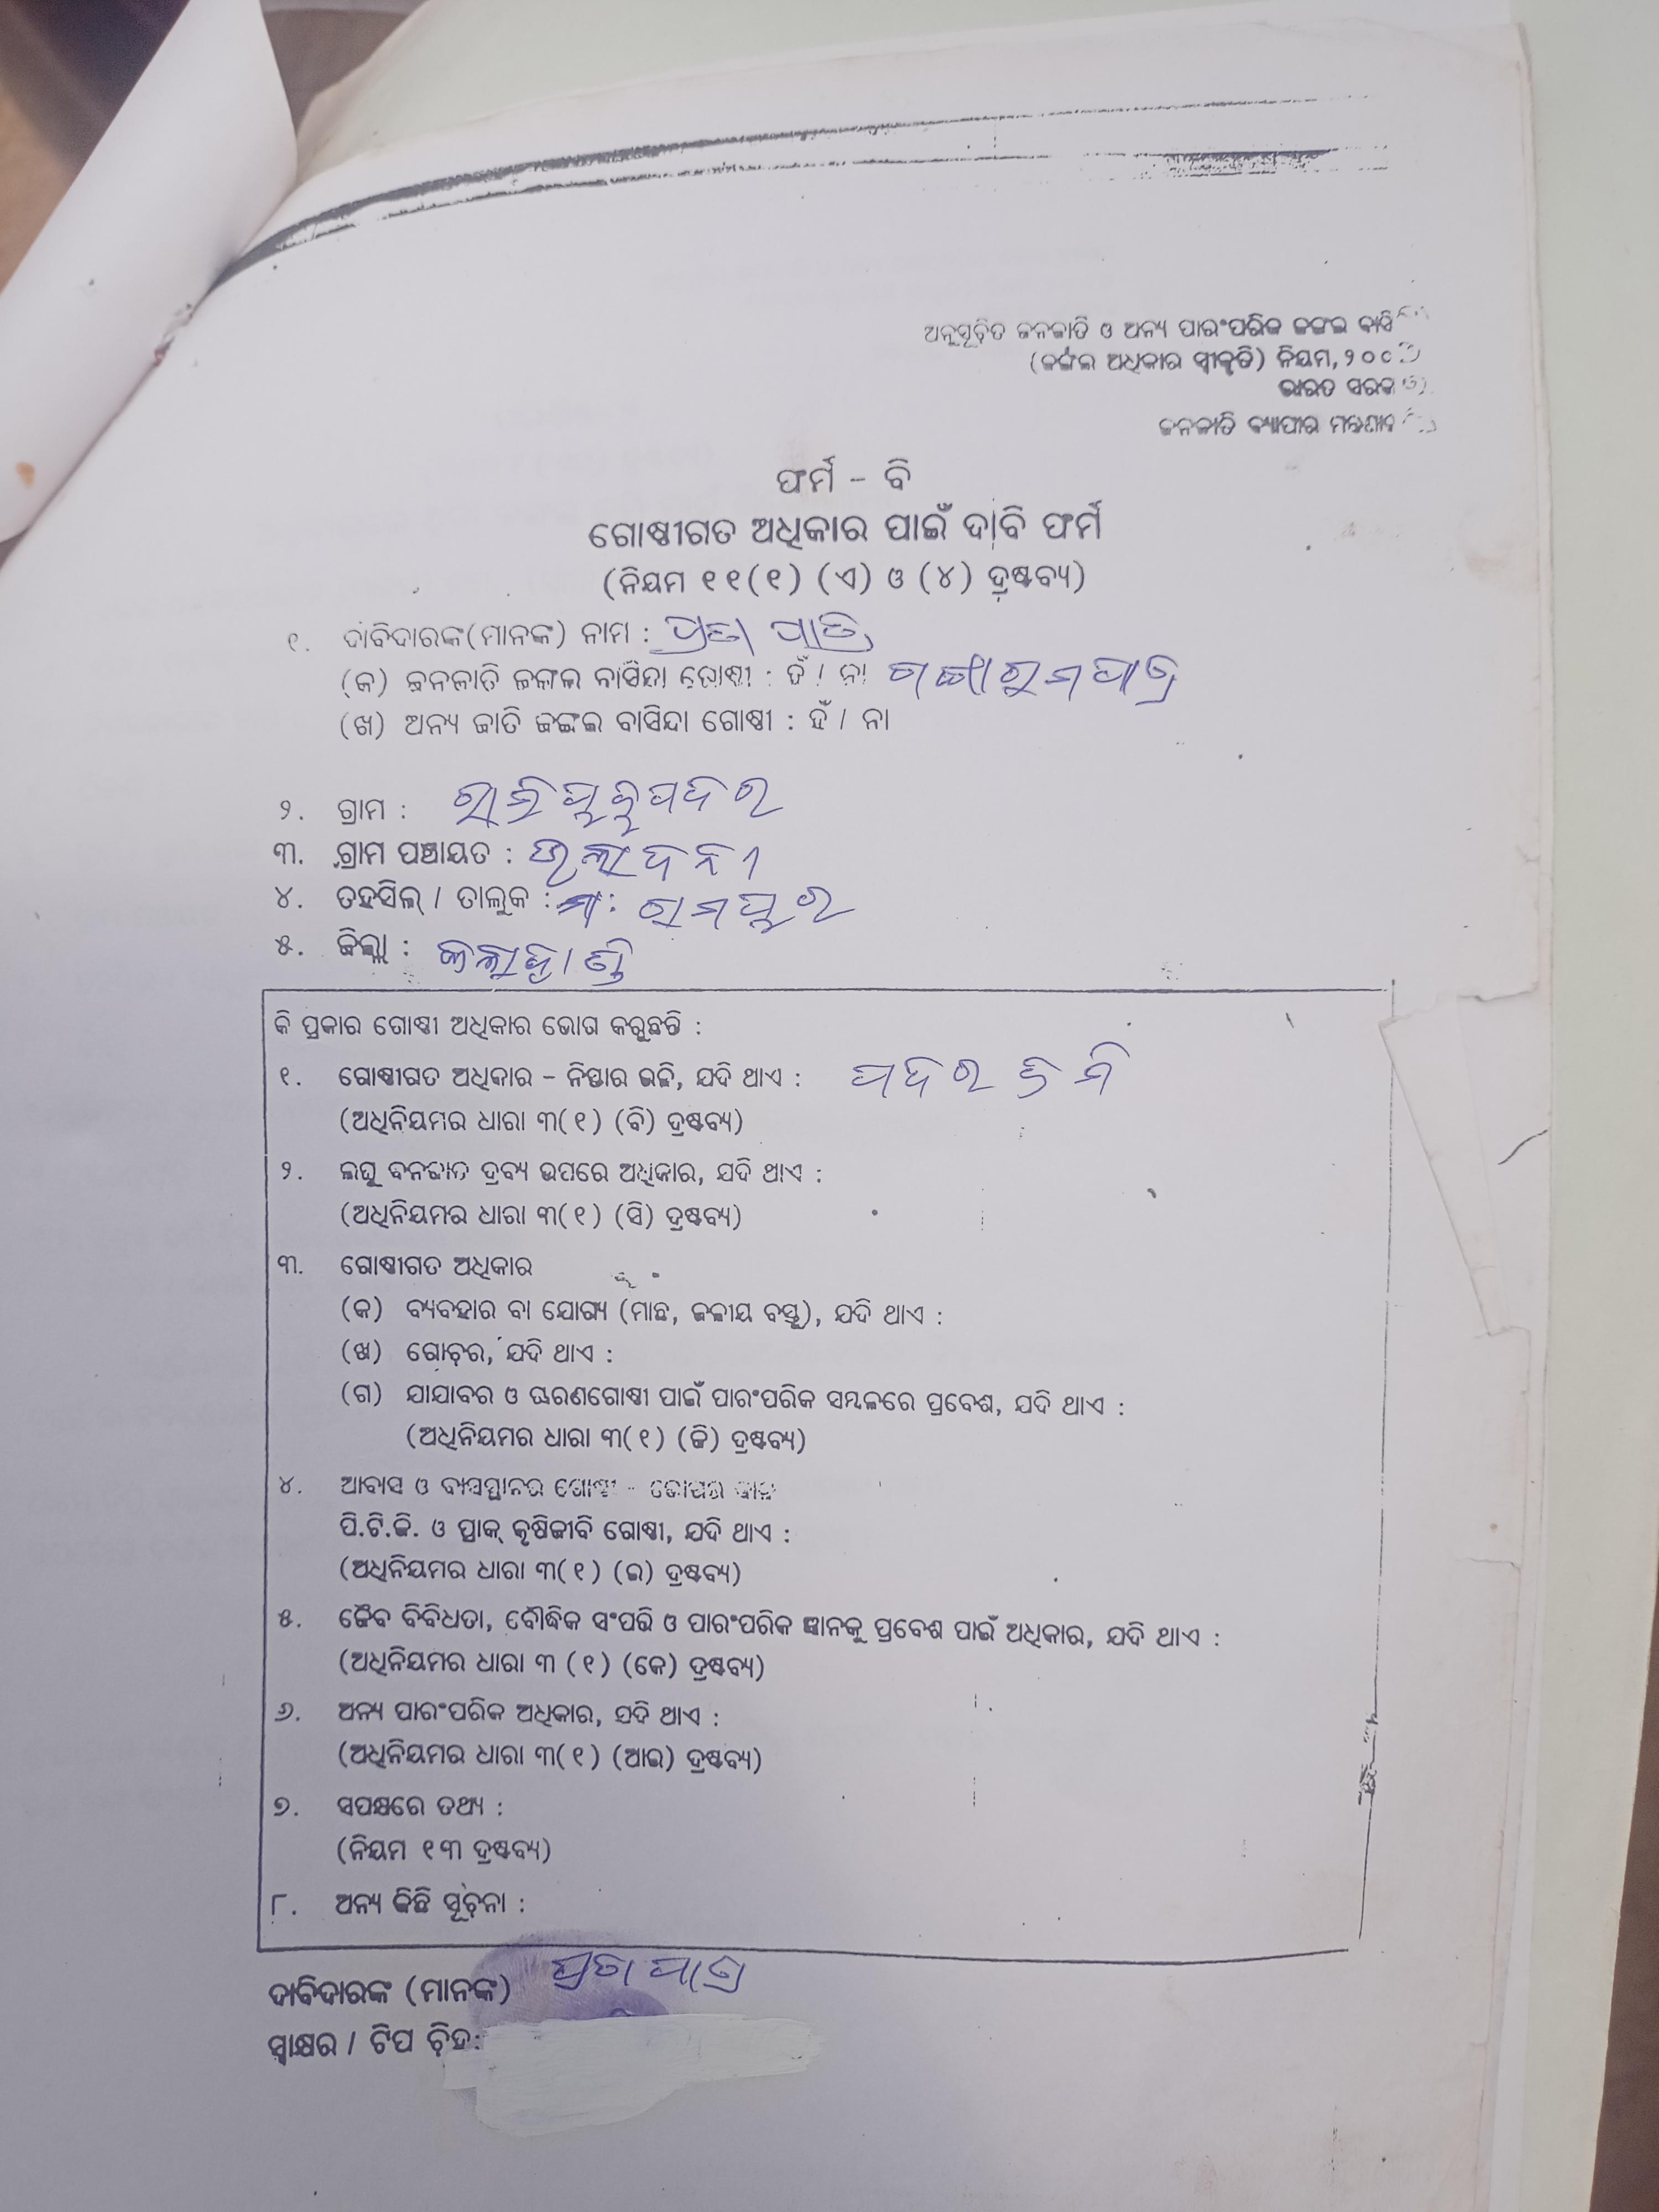 ଅନୁସୂଚିତ ଜନଜାତି ଓ ଅନ୍ୟ ପାରଂପରିକ ଜଙ୍ଗଲ ବାସି
(ଜଙ୍ଗଲ ଅଧିକାର ସ୍ୱୀକୃତି) ନିୟମ, ୨୦୦
ଭାରତ ସରକା
ଜନଜାତି ବ୍ୟାପାର ମନ୍ତ୍ରଣା
ଫର୍ମ - ବି
ଗୋଷ୍ଠୀଗତ ଅଧିକାର ପାଇଁ ଦାବି ଫର୍ମ
(ନିୟମ ୧୧(୧) (ଏ) ଓ (୪) ଦ୍ରଷ୍ଟବ୍ୟ)
୧. ଦାବିଦାରଙ୍କ(ମାନଙ୍କ) ନାମ : ପାତ୍ର
(କ) ଜନଜାତି ଜଙ୍ଗଲ ବାସିନ୍ଦା ଗୋଷ୍ଠୀ : ହଁ / ନା
(ଖ) ଅନ୍ୟ ଜାତି ଜଙ୍ଗଲ ବାସିନ୍ଦା ଗୋଷ୍ଠୀ : ହଁ / ନା
୨. ଗ୍ରାମ :
୩. ଗ୍ରାମ ପଞ୍ଚାୟତ :
୪. ତହସିଲ୍ / ତାଲୁକ : ମ: ରାମପୁର
୫. ଜିଲ୍ଲା : କଳାହାଣ୍ଡି
କି ପ୍ରକାର ଗୋଷ୍ଠୀ ଅଧିକାର ଭୋଗ କରୁଛନ୍ତି :
୧. ଗୋଷ୍ଠୀଗତ ଅଧିକାର - ନିସ୍ତାର ଭଳି, ଯଦି ଥାଏ : ପଦର ଜମି
(ଅଧିନିୟମର ଧାରା ୩(୧) (ବି) ଦ୍ରଷ୍ଟବ୍ୟ)
୨. ଲଘୁ ବନଜାତ ଦ୍ରବ୍ୟ ଉପରେ ଅଧିକାର, ଯଦି ଥାଏ :
(ଅଧିନିୟମର ଧାରା ୩(୧) (ସି) ଦ୍ରଷ୍ଟବ୍ୟ)
୩. ଗୋଷ୍ଠୀଗତ ଅଧିକାର
(କ) ବ୍ୟବହାର ବା ଯୋଗ୍ୟ (ମାଛ, ଜଳୀୟ ବସ୍ତୁ), ଯଦି ଥାଏ :
(ଖ) ଗୋଚର, ଯଦି ଥାଏ :
(ଗ) ଯାଯାବର ଓ ଭ୍ରରଣଗୋଷ୍ଠୀ ପାଇଁ ପାରଂପରିକ ସମ୍ବଳରେ ପ୍ରବେଶ, ଯଦି ଥାଏ :
(ଅଧିନିୟମର ଧାରା ୩(୧) (ଜି) ଦ୍ରଷ୍ଟବ୍ୟ)
୪. ଆବାସ ଓ ବାସସ୍ଥାନର ଗୋଷ୍ଠୀ -
ପି.ଟି.ଜି. ଓ ପ୍ରାକ୍ କୃଷିଜୀବି ଗୋଷ୍ଠୀ, ଯଦି ଥାଏ :
(ଅଧିନିୟମର ଧାରା ୩(୧) (ଇ) ଦ୍ରଷ୍ଟବ୍ୟ)
୫. ଜୈବ ବିବିଧତା, ବୌଦ୍ଧିକ ସଂପତ୍ତି ଓ ପାରଂପରିକ ଜ୍ଞାନକୁ ପ୍ରବେଶ ପାଇଁ ଅଧିକାର, ଯଦି ଥାଏ :
(ଅଧିନିୟମର ଧାରା ୩ (୧) (କେ) ଦ୍ରଷ୍ଟବ୍ୟ)
୬. ଅନ୍ୟ ପାରଂପରିକ ଅଧିକାର, ଯଦି ଥାଏ :
(ଅଧିନିୟମର ଧାରା ୩(୧) (ଆଇ) ଦ୍ରଷ୍ଟବ୍ୟ)
୭. ସପକ୍ଷରେ ତଥ୍ୟ :
(ନିୟମ ୧୩ ଦ୍ରଷ୍ଟବ୍ୟ)
୮. ଅନ୍ୟ କିଛି ସୂଚନା :
ଦାବିଦାରଙ୍କ (ମାନଙ୍କ) ପାତ୍ର
ସ୍ୱାକ୍ଷର / ଟିପ ଚିହ୍ନ: